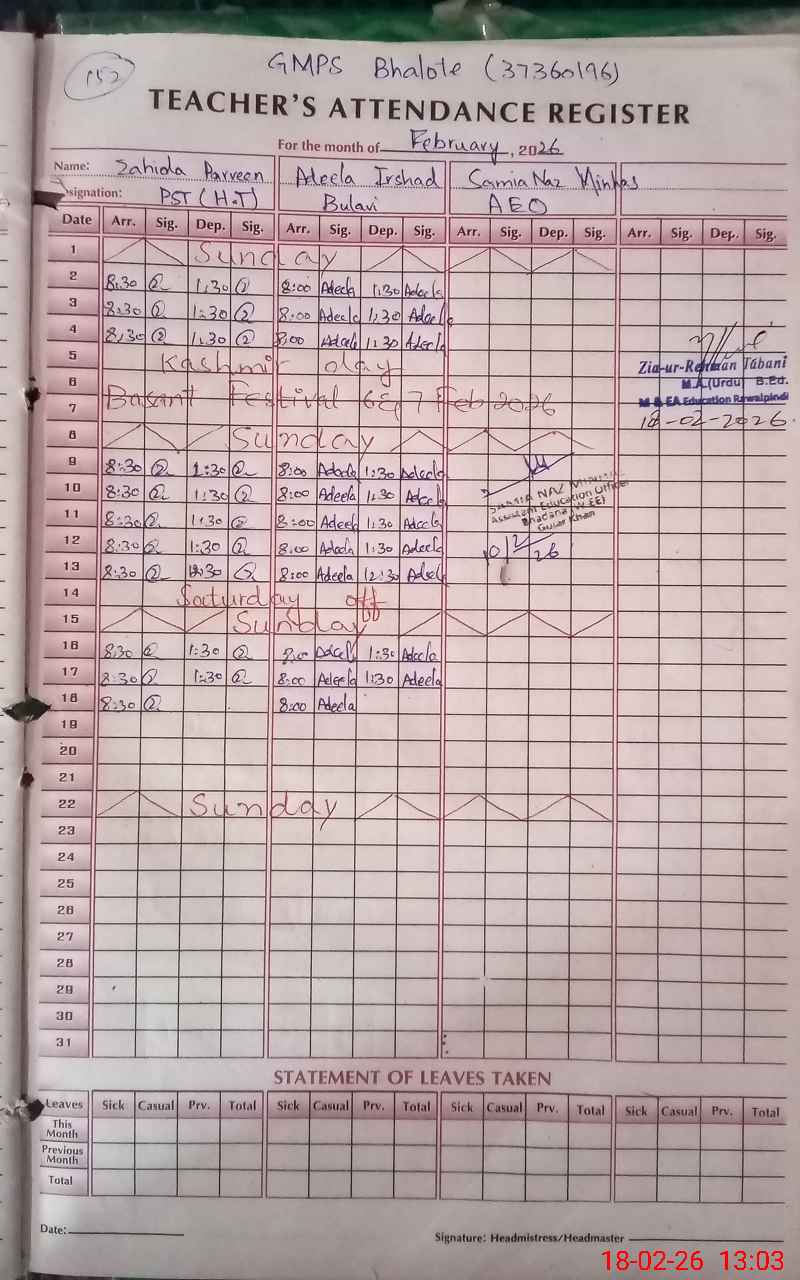 152
GMPS Bhalote (37360196)
TEACHER'S ATTENDANCE REGISTER
For the month of February, 2026
Name: Sahida Parveen Adeela Irshad Samia Naz Minhas
Designation: PST (H.T) Bulavi AEO
Date Arr. Sig. Dep. Sig. Arr. Sig. Dep. Sig. Arr. Sig. Dep. Sig. Arr. Sig. Dep. Sig.
1 Sunday
2 8:30 1:30 8:00 Adeela 1:30 Adeela
3 8:30 1:30 8:00 Adeela 1:30 Adeela
4 8:30 1:30 8:00 Adeela 1:30 Adeela
5 Kashmir day
Zia-ur-Rehman Tabani
6
M.A.(Urdu) B.Ed.
7 Basant Festival 6 & 7 Feb 2026
M & EA Education Rawalpindi
18-02-2026
8 Sunday
9 8:30 1:30 8:00 Adeela 1:30 Adeela
10 8:30 1:30 8:00 Adeela 1:30 Adeela
SAMIA NAZ MINHAS
Assistant Education Officer
11 8:30 1:30 8:00 Adeela 1:30 Adeela
Bhadana (W-EE)
Gujar Khan
12 8:30 1:30 8:00 Adeela 1:30 Adeela
10/2/26
13 8:30 12:30 8:00 Adeela 12:30 Adeela
14 Saturday off
15 Sunday
16 8:30 1:30 8:00 Adeela 1:30 Adeela
17 8:30 1:30 8:00 Adeela 1:30 Adeela
18 8:30 8:00 Adeela
19
20
21
22 Sunday
23
24
25
26
27
28
29
30
31
STATEMENT OF LEAVES TAKEN
Leaves Sick Casual Prv. Total Sick Casual Prv. Total Sick Casual Prv. Total Sick Casual Prv. Total
This Month
Previous Month
Total
Date:
Signature: Headmistress/Headmaster
18-02-26 13:03